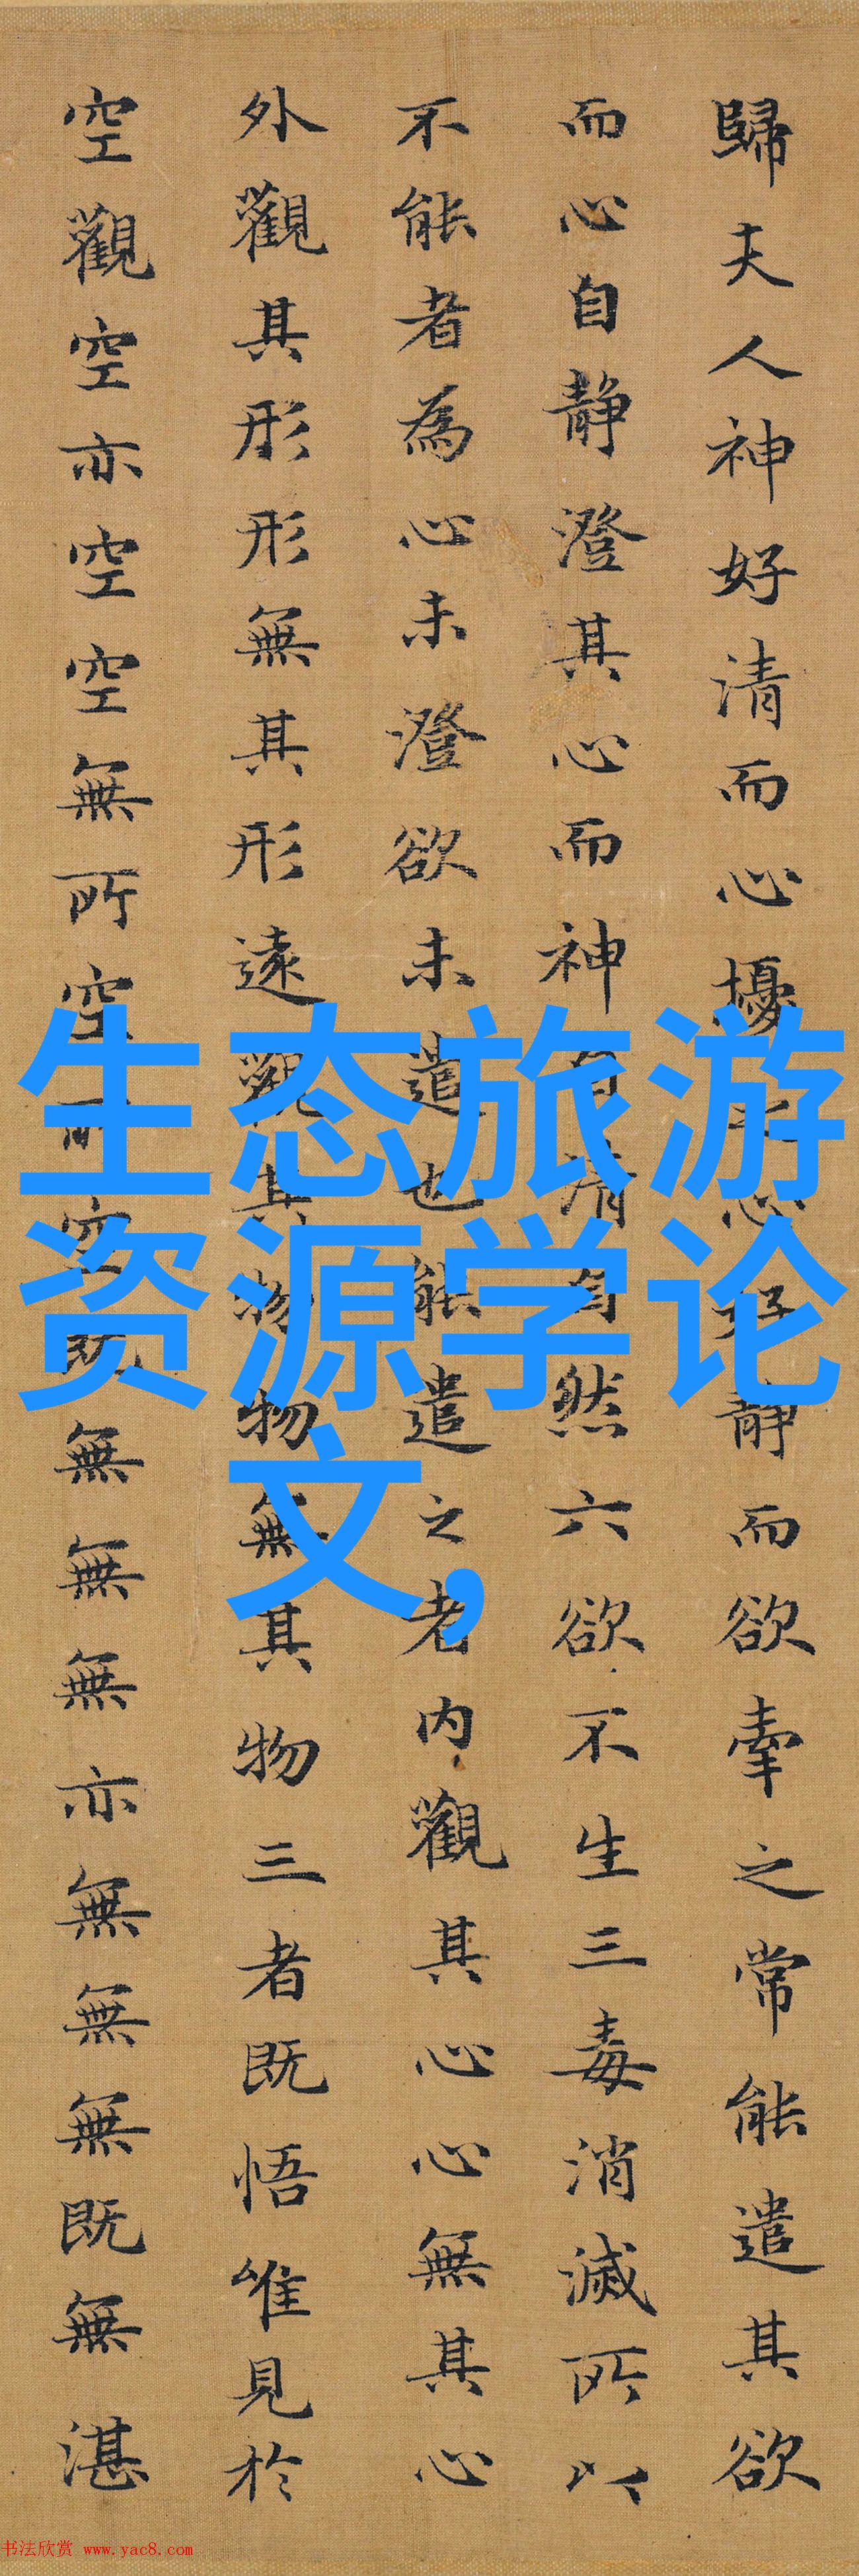 歸夫人神好清而心擾之心好靜而欲牽之常能遣其欲
而心自静澄其心而神自清自然六欲不生三毒消滅所以
不能者為心未澄欲未遣也能遣之者内觀其心心無其心
外觀其形形無其形遠觀其物物無其物三者既悟唯見於
空觀空亦空空無所空所空既無無無亦無無無既無湛
生态旅游
资源学论
文,
书法欣赏 www.yac8.com